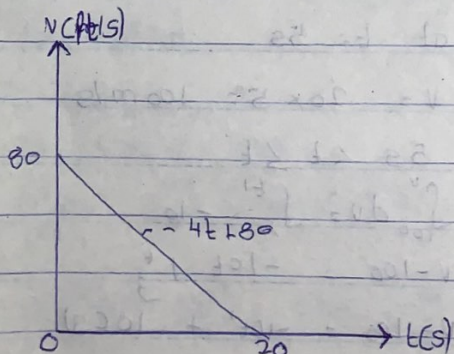 V(ft/s)
80
-4t+80
0
20
t(s)